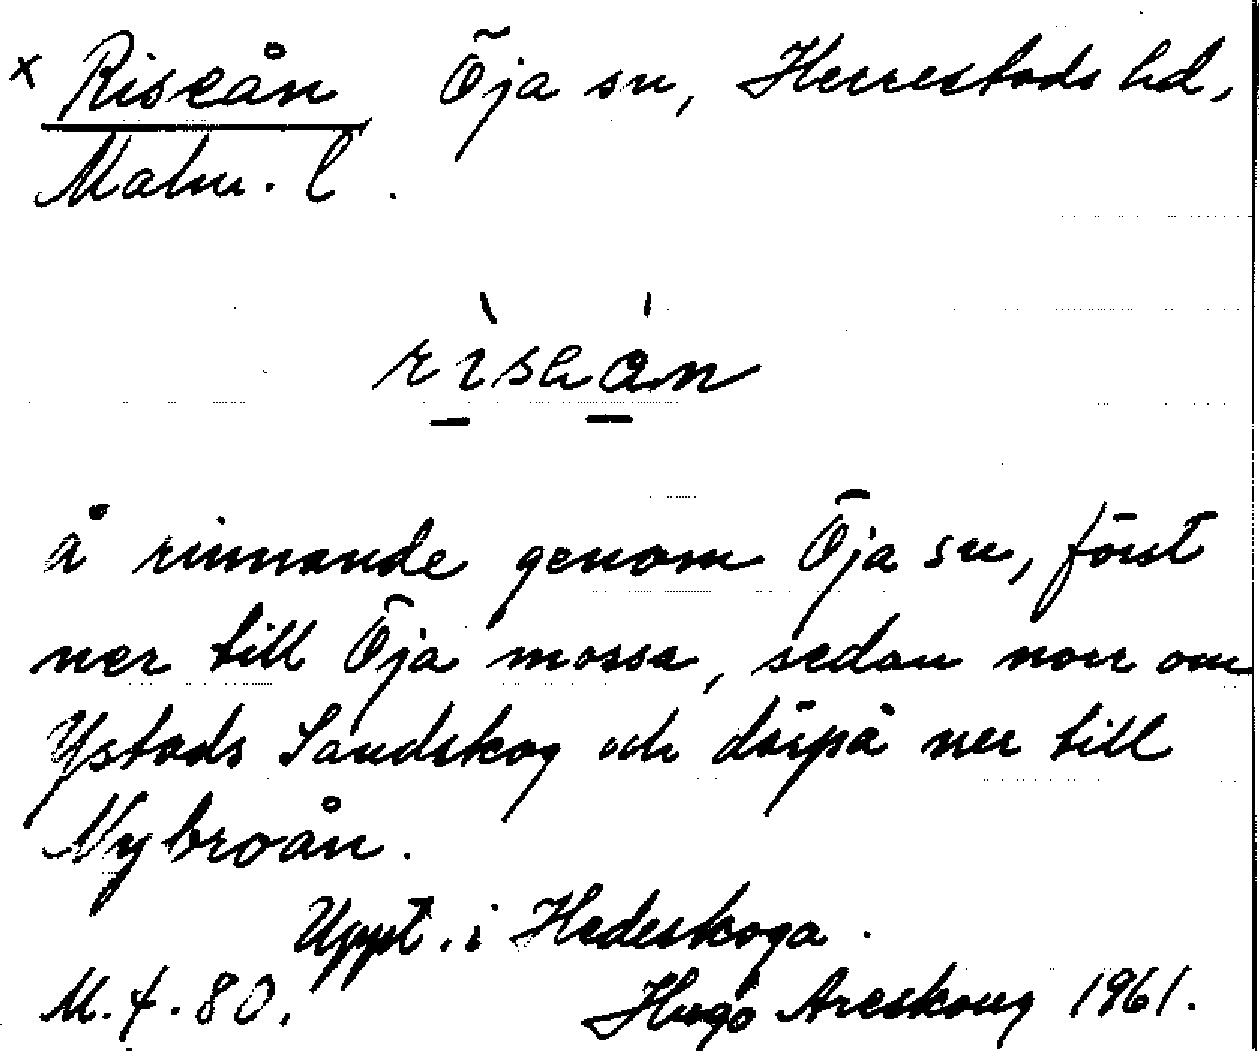 x Riseån Öja sn, Herrestads hd,
Malm. l.
å rinnande genom Öja sn, först
ner till Öja mossa, sedan norr om
Ystads Sandskog och därpå ner till
Nybroån.
Uppt. i Hedeskoga.
M.4.80. Hugo Areskoug 1961.